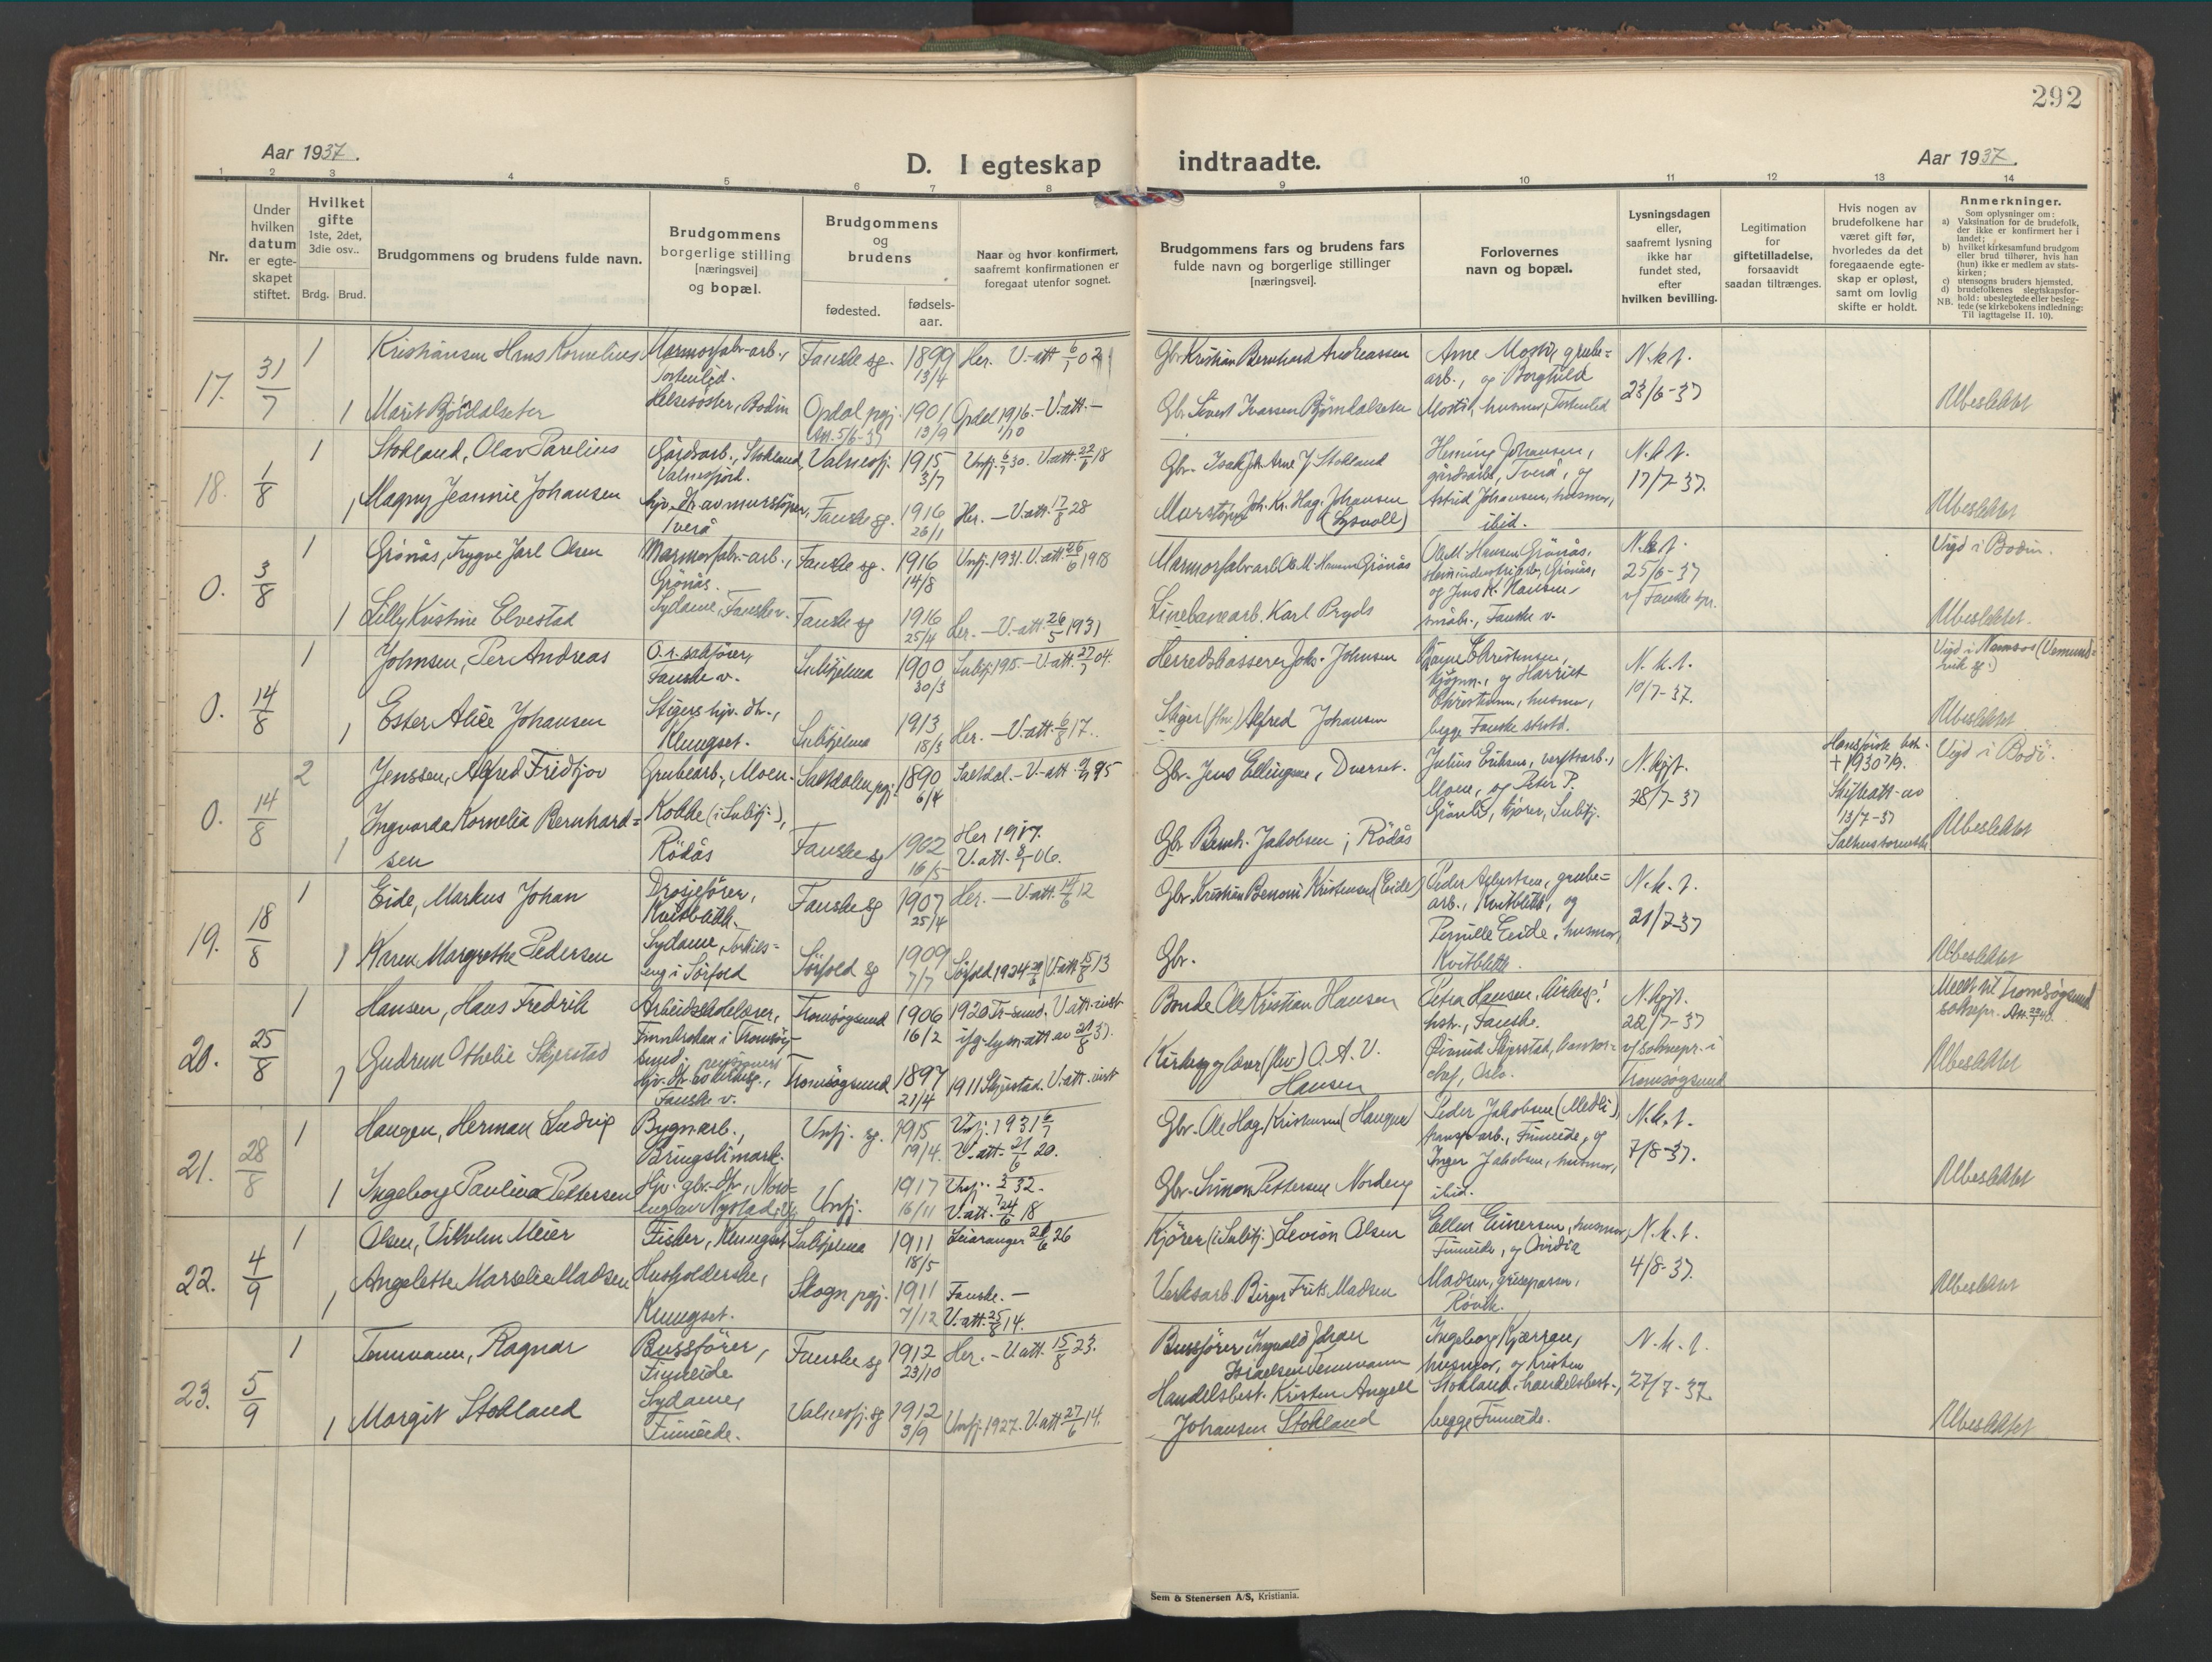 292
Aar 1937.
D. I egteskap indtraadte.
Aar 1937.
1 2 3 4 5 6 7 8 9 10 11 12 13 14
Nr.
Under hvilken datum er egte-skapet stiftet.
Hvilket gifte 1ste, 2det, 3die osv..
Brdg. Brud.
Brudgommens og brudens fulde navn.
Brudgommens borgerlige stilling [næringsvei] og bopæl.
Brudgommens og brudens
fødested.
fødsels-aar.
Naar og hvor konfirmert, saafremt konfirmationen er foregaat utenfor sognet.
Brudgommens fars og brudens fars fulde navn og borgerlige stillinger [næringsvei].
Forlovernes navn og bopæl.
Lysningsdagen eller, saafremt lysning ikke har fundet sted, efter hvilken bevilling.
Legitimation for giftetilladelse, forsaavidt saadan tiltrænges.
Hvis nogen av brudefolkene har været gift før, hvorledes da det foregaaende egte-skap er opløst, samt om lovlig skifte er holdt.
Anmerkninger.
Som oplysninger om:
a) Vaksination for de brudefolk, der ikke er konfirmert her i landet;
b) hvilket kirkesamfund brudgom eller brud tilhører, hvis han (hun) ikke er medlem av stats-kirken;
c) utensogns bruders hjemsted.
d) brudefolkenes slegtskapsfor-hold: ubeslegtede eller besleg-tede (se kirkebokens indledning:
NB. Til iagttagelse II. 10).
17. 31/7 1 Kristiansen Hans Kornelius Marmorfabr-arb., Fauske sg. 1899 13/4 Her. V.-att 6/1 02 Gbr Kristian Bernhard Andreassen
1 Marit Bjørdalseter Helsesøster, Bodin Opdal pgj. 1901 13/9 Opdal 1916 1/10 - V.-att. - Gbr. Sivert Ivarsen Bjørndalseter
Arne Mostid, grube=
arb., og Borghild
Mostid, husmor,
N.k.f.
23/6-37
Ubeslektet
18. 1/8 1 Stokland, Olav Parelius Gårdsarb., Stokland, Valnesfj. 1915 3/7 Unfj. V.att. 22/6 18 Gbr. Isak Joh. Arne J. Stokland
1 Magny Jeannie Johansen hjv. dtr av murstøper, Tverå Fauske sg. 1916 26/1 Her. - V.att. 17/8 28 Murstøper Joh. Kr. Hag. Johansen (Lysvoll)
Heming Johansen,
gårdsarb., Tverå, og
Astrid Johansen, husmor,
ibid.
N.k.f.
17/7-37.
Ubeslektet
0. 3/8 1 Grønås, Trygve Jarl Olsen Marmorfabr.-arb., Grønås. Fauske sg. 1916 14/8 Unfj. 1931. V.att. 26/6 1918 Marmorfabr-arb Ole M. Hansen Grønås
1 Lilly Kristine Elvestad Sydame, Fauske v. Fauske sg 1916 25/4 Her. - V.-att. 26/5 1931 Linebanearb. Karl Pryds
Ole M. Hansen Grønås,
og Jens K. Hansen,
småbr., Fauske v.
N.k.f.
25/6-37
v/ Fauske spr.
Vigd i Bodin.
Ubeslektet.
0. 14/8 1 Johnsen, Per Andreas O.r. sakfører, Fauske v. Sulitjelma 1900 30/3 V-att. 27/7 04. Herredskasserer Johs. Johnsen
1 Ester Alice Johansen Stigers hjv. dtr., Klungset. Sulitjelma 1913 18/3 Her. - V.-att. 6/8 17. Stiger (fhv.) Alfred Johansen
kjøpm., og Harriet
Christiansen, husmor,
begge Fauske
N.k.f.
10/7-37.
Vigd i Namsos (Vemund=
vik sg.)
Ubeslektet
0. 14/8 2 Jenssen, Alfred Fridtjov Grubearb., Moen- Kobbe (i Sulitj.), Saltdalen pgj. 1890 6/4 Saltdal. - V-att 95 Gbr. Jens Ellingsen, Dverset.
1 Ingvarda Kornelia Bernhard=
sen Rødås Fauske sg 1902 16/5 Her 1917. V.att. 06. Gbr. Bernh. Jakobsen, Rødås
Julius Eriksen, verkstarb.,
Moen, og Peter P.
Grønli, kjører, Sulitj.
N.kjft.
28/7-37
Hans første
+ 1930 7/9.
Skifteatt. av
13/7-37
Vigd i Bodø.
Ubeslektet
19. 18/8 1 Eide, Markus Johan Drosjefører, Kvitblikk. Fauske sg 1907 25/4 Her. - V.att. 14/6 12 Gbr. Kristian Benoni Kristensen (Eide)
1 Karen Margrethe Pedersen Sydame, Torkils=
eng i Sørfold Sørfold sg 1909 7/7 Sørfold 1924 V.att. 15/8 13 Gbr.
Peder Albertsen, grube=
arb., Kvitblikk, og
Pernille Eide, husmor,
Kvitblikk.
N.k.f.
21/7-37
Ubeslektet
20. 25/8 1 Hansen, Hans Fredrik Arbeidsledelærer, i Tromsøy-
sund. Tromsøysund 1906 16/2 1920 Tr-sund. V.att. Bonde Ole Kristian Hansen
1 Gudrun Othelie Skjerstad hjv. dtr. Fauske v. Tromsøysund 1897 21/4 1911 Skjerstad. V.att. Kirkesanger (fhv.) O. A. V. Hansen
Petra Hansen,
Fauske.
Øivind Skjerstad, kontor=
chef, Oslo.
N.kjft.
22/7-37
v/ soknepr. i
Tromsøysund
Meldt til Tromsøysund
soknepr.
Ubeslektet
21. 28/8 1 Haugen, Herman Ludvig Bygnarb., Bringslimark. Unfj. sg. 1915 19/4. Unfj. 1931 V-att. 21/6 20. Gbr. Ole Hag. Kristensen (Haugen)
1 Ingeborg Paulina Pettersen Hjv. gbr.-dtr., Nord=
eng av Nystad, Unfj. 1917 16/11 Unfj. 32. V.att. 24/6 18 Gbr. Simon Pettersen Nordeng
Peder Jakobsen (Medli),
transp.arb., Finneide, og
Inger Jakobsen, husmor,
ibid.
N.k.f.
7/8-37.
Ubeslektet
22. 4/9 1 Olsen, Vilhelm Meier Fisker, Klungset Sulitjelma 1911 18/5 Leiranger 26 Kjører (i Sulitj.) Levion Olsen
1 Angelette Marselie Madsen Husholderske, Klungset. Skogn pgj. 1911 7/12 Fauske. - V.att. 25/8 14. Verksarb. Birger Frits Madsen
Ellen Einersen, husmor,
Finneide, og Ovidia
Madsen,
Røvik.
N.k.f.
4/8-37.
Ubeslektet
23. 5/9 1 Temmann, Ragnar Bussfører, Finneide Fauske sg 1912 23/10 Her. - V.att. 15/8 23. Bussfører Ingvald Johan
Israelsen Temmann
1 Margit Stokland Sydame, Finneide. Valnesfj. sg 1912 3/9 Unfj. 1927. V.att. 27/6 14. Handelsbest. Kristen Angell
Johansen Stokland
Ingeborg Kjærran,
husmor, og Kristen
Stokland, handelsbest.,
begge Finneide.
N.k.f.
27/7-37.
Ubeslektet
Sem & Stenersen A/S, Kristiania.